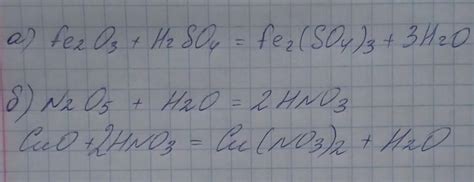 а) Fe₂O₃ + H₂SO₄ = Fe₂(SO₄)₃ + 3H₂O
б) N₂O₅ + H₂O = 2HNO₃
CuO + 2HNO₃ = Cu(NO₃)₂ + H₂O